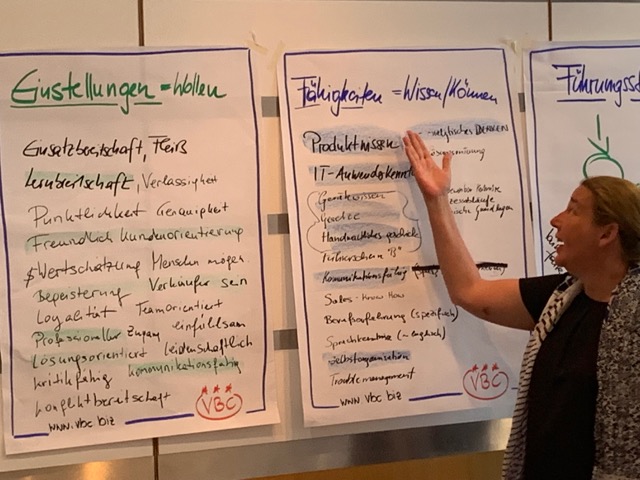 Einstellungen = Wollen
Einsatzbereitschaft, Fleiß
Lernbereitschaft, Verlässigkeit
Pünktlichkeit Genauigkeit
Freundlich Kundenorientierung
Wertschätzung Menschen mögen
Begeisterung Verkäufer sein
Loyalität Teamorientiert
Professioneller Zugang einfühlsam
Lösungsorientiert Leidenschaftlich
kritikfähig kommunikationsfähig
Konfliktbereitschaft
www.vbc.biz
VBC
Fähigkeiten = Wissen/Können
Produktwissen
IT-Anwenderkennt
Handwerkliches
Führerschein "B"
Kommunikationsfähig
Sales - Know How
Berufserfahrung (spezifisch)
Sprachkenntnis (Englisch)
Selbstorganisation
Troublemanagement
www.vbc.biz
VBC
Führungss